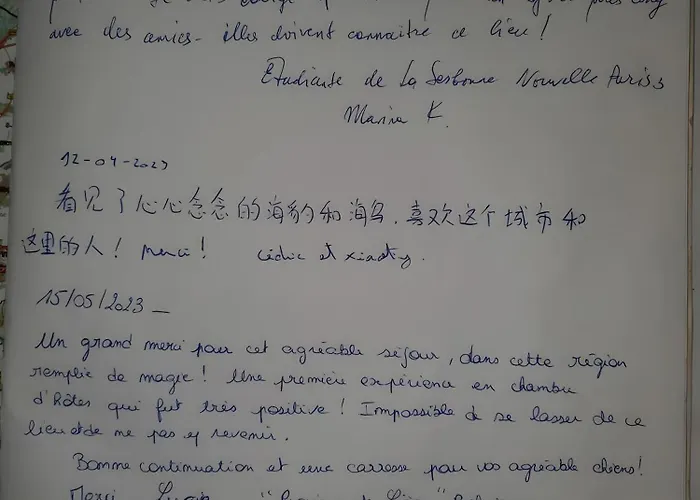 avec des amies. illes doivent connaitre ce lieu !
Etudiante de La Sorbonne Nouvelle Paris 3
Marina K.
12-04-2023
看见了心心念念的海豹和海鸟. 喜欢这个城市和
这里的人! merci ! Cédric et
15/05/2023 _
Un grand merci pour cet agréable séjour, dans cette région
remplie de magie ! Une première expérience en chambre
d'Hôtes qui fut très positive ! Impossible de se lasser de ce
lieu et de ne pas y revenir.
Bonne continuation et une caresse pour vos agréable chiens !
Merci